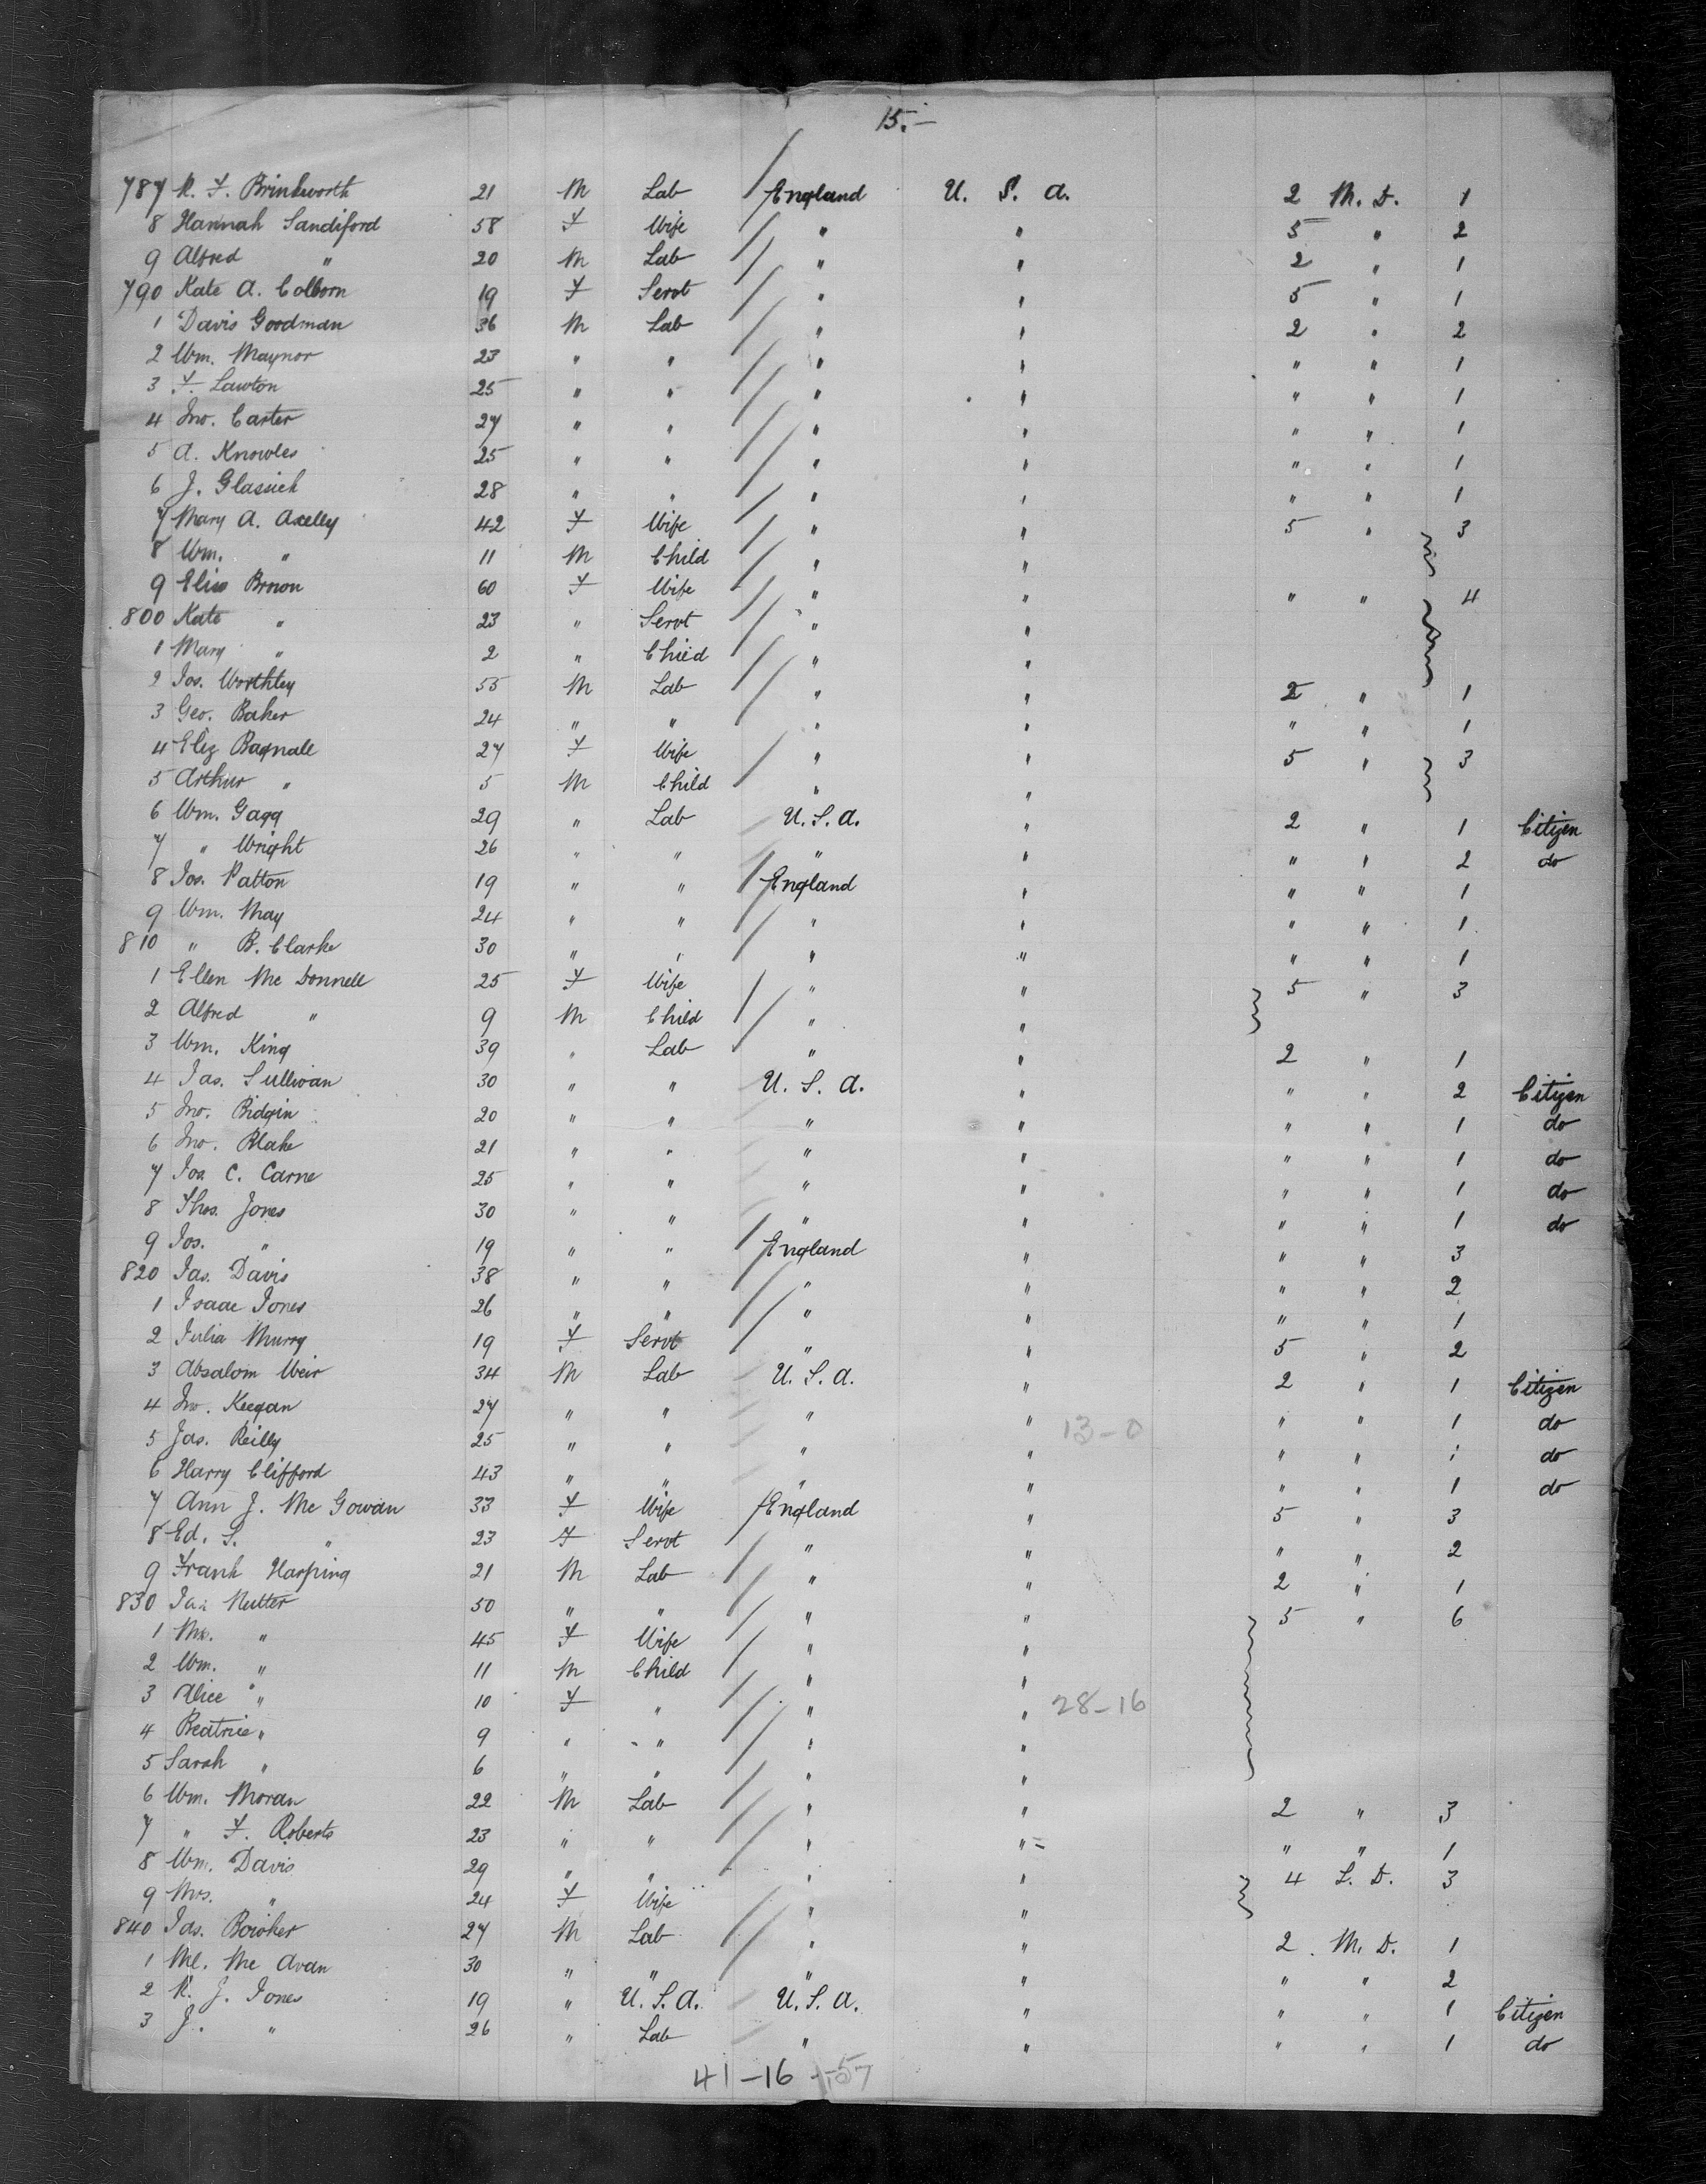 15.—
787 R. F. Brinkworth 21 M Lab England U. S. A. 2 M. D. 1
8 Hannah Sandiford 58 F Wife " " 5 " 2
9 Alfred " 20 M Lab " " 2 " 1
790 Kate A. Colborn 19 F Servt " " 5 " 1
1 Davis Goodman 36 M Lab " " 2 " 2
2 Wm. Maynor 23 " " " " " " 1
3 F. Lawton 25 " " " " " " 1
4 Jno. Carter 27 " " " " " " 1
5 A. Knowles 25 " " " " " " 1
6 J. Glassick 28 " " " " " " 1
7 Mary A. Axelly 42 F Wife " " 5 " 3
8 Wm. " 11 M Child " "
9 Eliza Brown 60 F Wife " " " " 4
800 Kate " 23 " Servt " "
1 Mary " 2 " Child " "
2 Jos. Worthley 55 M Lab " " 2 " 1
3 Geo. Baker 24 " " " " " " 1
4 Eliz Bagnall 27 F Wife " " 5 " 3
5 Arthur " 5 M Child " "
6 Wm. Gagg 29 " Lab U. S. A. " 2 " 1 Citizen
7 " Wright 26 " " " " " " 2 do
8 Jos. Patton 19 " " England " " " 1
9 Wm. May 24 " " " " " " 1
810 " B. Clarke 30 " " " " " " 1
1 Ellen Mc Donnell 25 F Wife " " 5 " 3
2 Alfred " 9 M Child " "
3 Wm. King 39 " Lab " " 2 " 1
4 Jas. Sullivan 30 " " U. S. A. " " " 2 Citizen
5 Jno. Bidgin 20 " " " " " " 1 do
6 Jno. Blake 21 " " " " " " 1 do
7 Jos C. Carne 25 " " " " " " 1 do
8 Thos. Jones 30 " " " " " " 1 do
9 Jos. " 19 " " England " " " 3
820 Jas. Davis 38 " " " " " " 2
1 Isaac Jones 26 " " " " " " 1
2 Julia Murry 19 F Servt " " 5 " 2
3 Absalom Weir 34 M Lab U. S. A. " 2 " 1 Citizen
4 Jno. Keegan 27 " " " " 13-0 " " 1 do
5 Jas. Reilly 25 " " " " " " 1 do
6 Harry Clifford 43 " " " " " " 1 do
7 Ann J. Mc Gowan 33 F Wife England " 5 " 3
8 Ed. S. " 23 F Servt " " " " 2
9 Frank Harping 21 M Lab " " 2 " 1
830 Jas Nutter 50 " " " " 5 " 6
1 Mrs. " 45 F Wife " "
2 Wm. " 11 M Child " "
3 Alice " 10 F " " " 28-16
4 Beatrice " 9 " " " "
5 Sarah " 6 " " " "
6 Wm. Moran 22 M Lab " " 2 " 3
7 " F. Roberts 23 " " " " " " 1
8 Wm. Davis 29 " " " " 4 S. D. 3
9 Mrs. " 24 F Wife " "
840 Jas. Bowker 27 M Lab " " 2 M. D. 1
1 Ml. Mc Avan 30 " " " " " " 2
2 R. J. Jones 19 " U. S. A. U. S. A. " " " 1 Citizen
3 J. " 26 " Lab " " " " 1 do
41-16 57